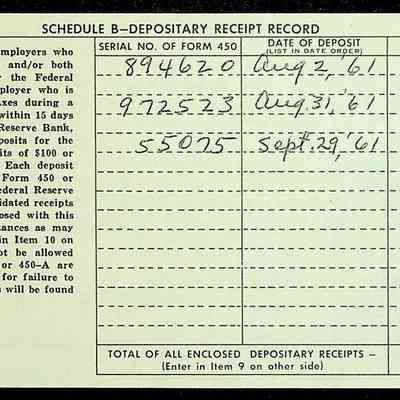 SCHEDULE B—DEPOSITARY RECEIPT RECORD
mployers who
and/or both
r the Federal
ployer who is
axes during a
within 15 days
Reserve Bank,
posits for the
its of $100 or
Each deposit
Form 450 or
ederal Reserve
idated receipts
osed with this
tances as may
in Item 10 on
ot be allowed
or 450-A are
for failure to
s will be found
SERIAL NO. OF FORM 450
DATE OF DEPOSIT
(LIST IN DATE ORDER)
894620 Aug 2, '61
972523 Aug 31, '61
55075 Sept. 29, '61
TOTAL OF ALL ENCLOSED DEPOSITARY RECEIPTS –
(Enter in Item 9 on other side)